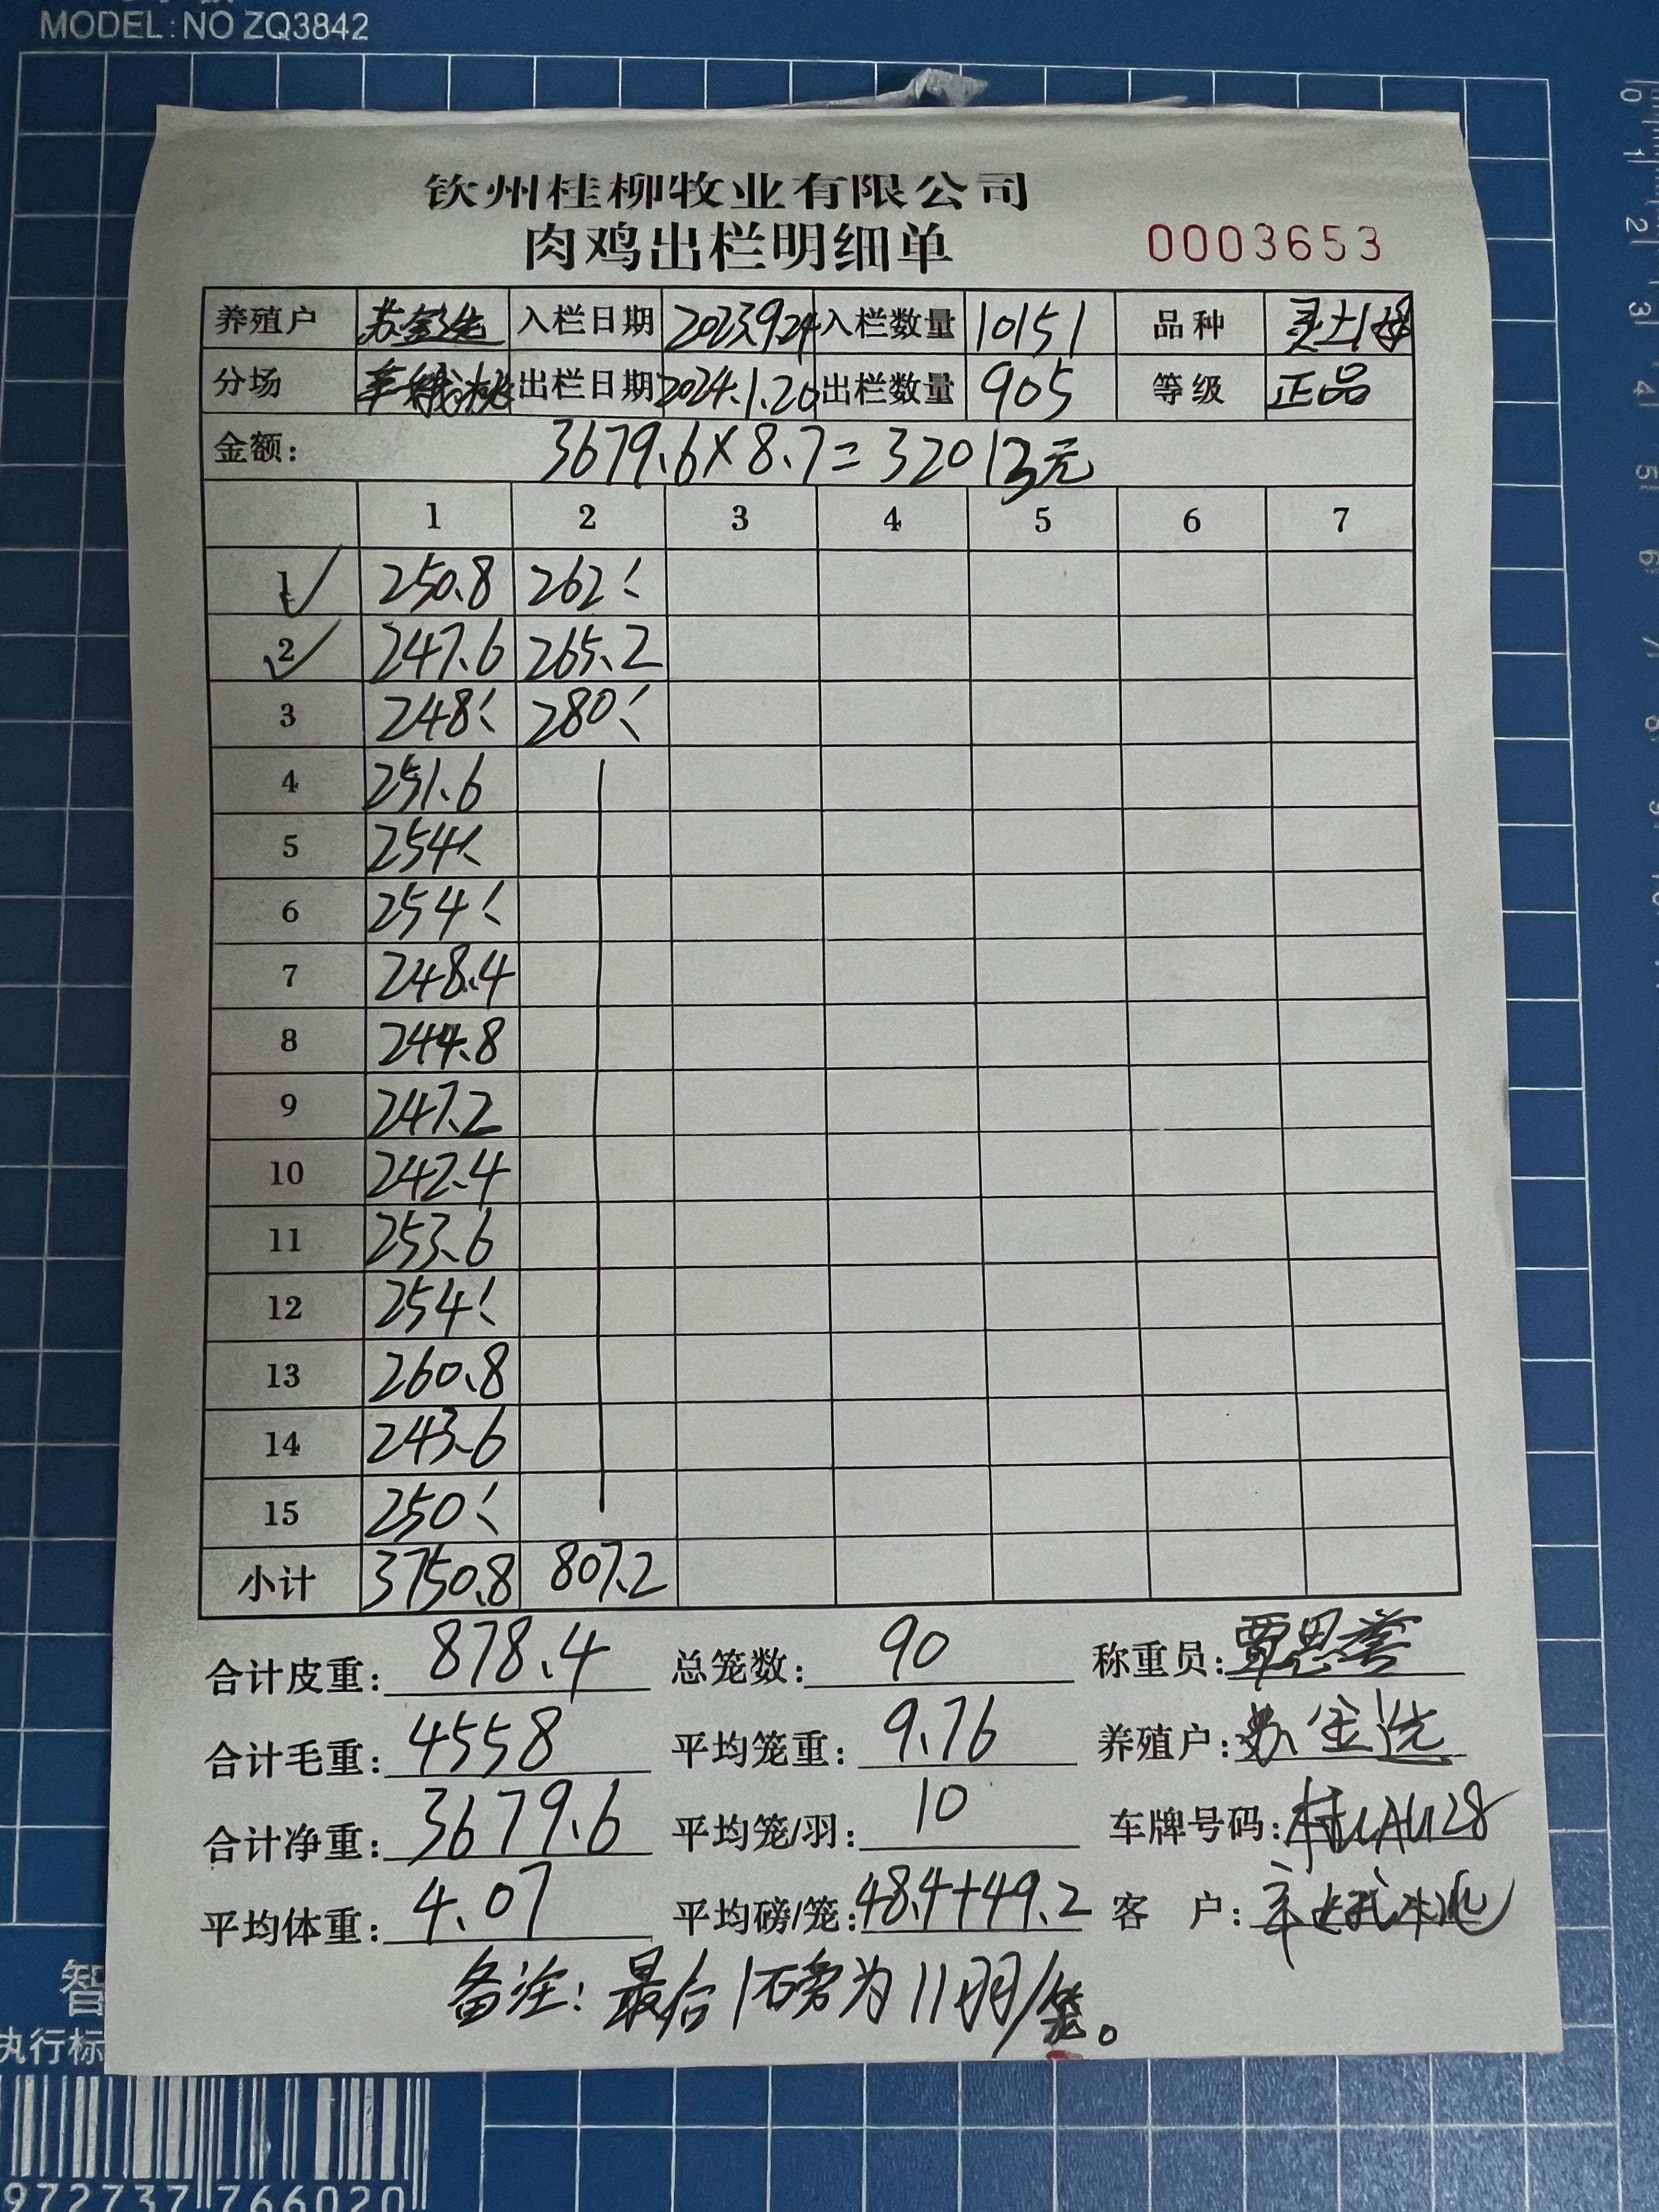 MODEL: NO ZQ3842
钦州桂柳牧业有限公司
肉鸡出栏明细单 0003653
养殖户 苏金选 入栏日期 2023.9.24 入栏数量 10151 品种
分场 出栏日期 2024.1.20 出栏数量 905 等级 正品
金额: 3679.6×8.7=32013元
1 2 3 4 5 6 7
1 250.8 262.
2 247.6 265.2
3 248. 280.
4 251.6
5 254.
6 254.
7 248.4
8 244.8
9 247.2
10 242.4
11 253.6
12 254.
13 260.8
14 243.6
15 250.
小计 3750.8 807.2
合计皮重: 878.4 总笼数: 90 称重员: 覃思誉
合计毛重: 4558 平均笼重: 9.76 养殖户: 苏金选
合计净重: 3679.6 平均笼/羽: 10 车牌号码:
平均体重: 4.07 平均磅/笼: 48.4+49.2 客 户:
备注: 最后1磅为11羽/笼。
智
执行标
972737 766020
0 1 2 3 4 5 6 7 8 9 10